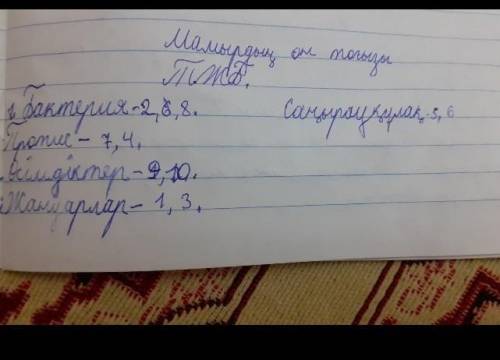 Мамырдың он тоғызы
ТЖБ.
Бактерия-2,8. Саңырауқұлақ-5,6
Протис- 7,4.
Өсімдіктер-9,10.
Жануарлар- 1,3.